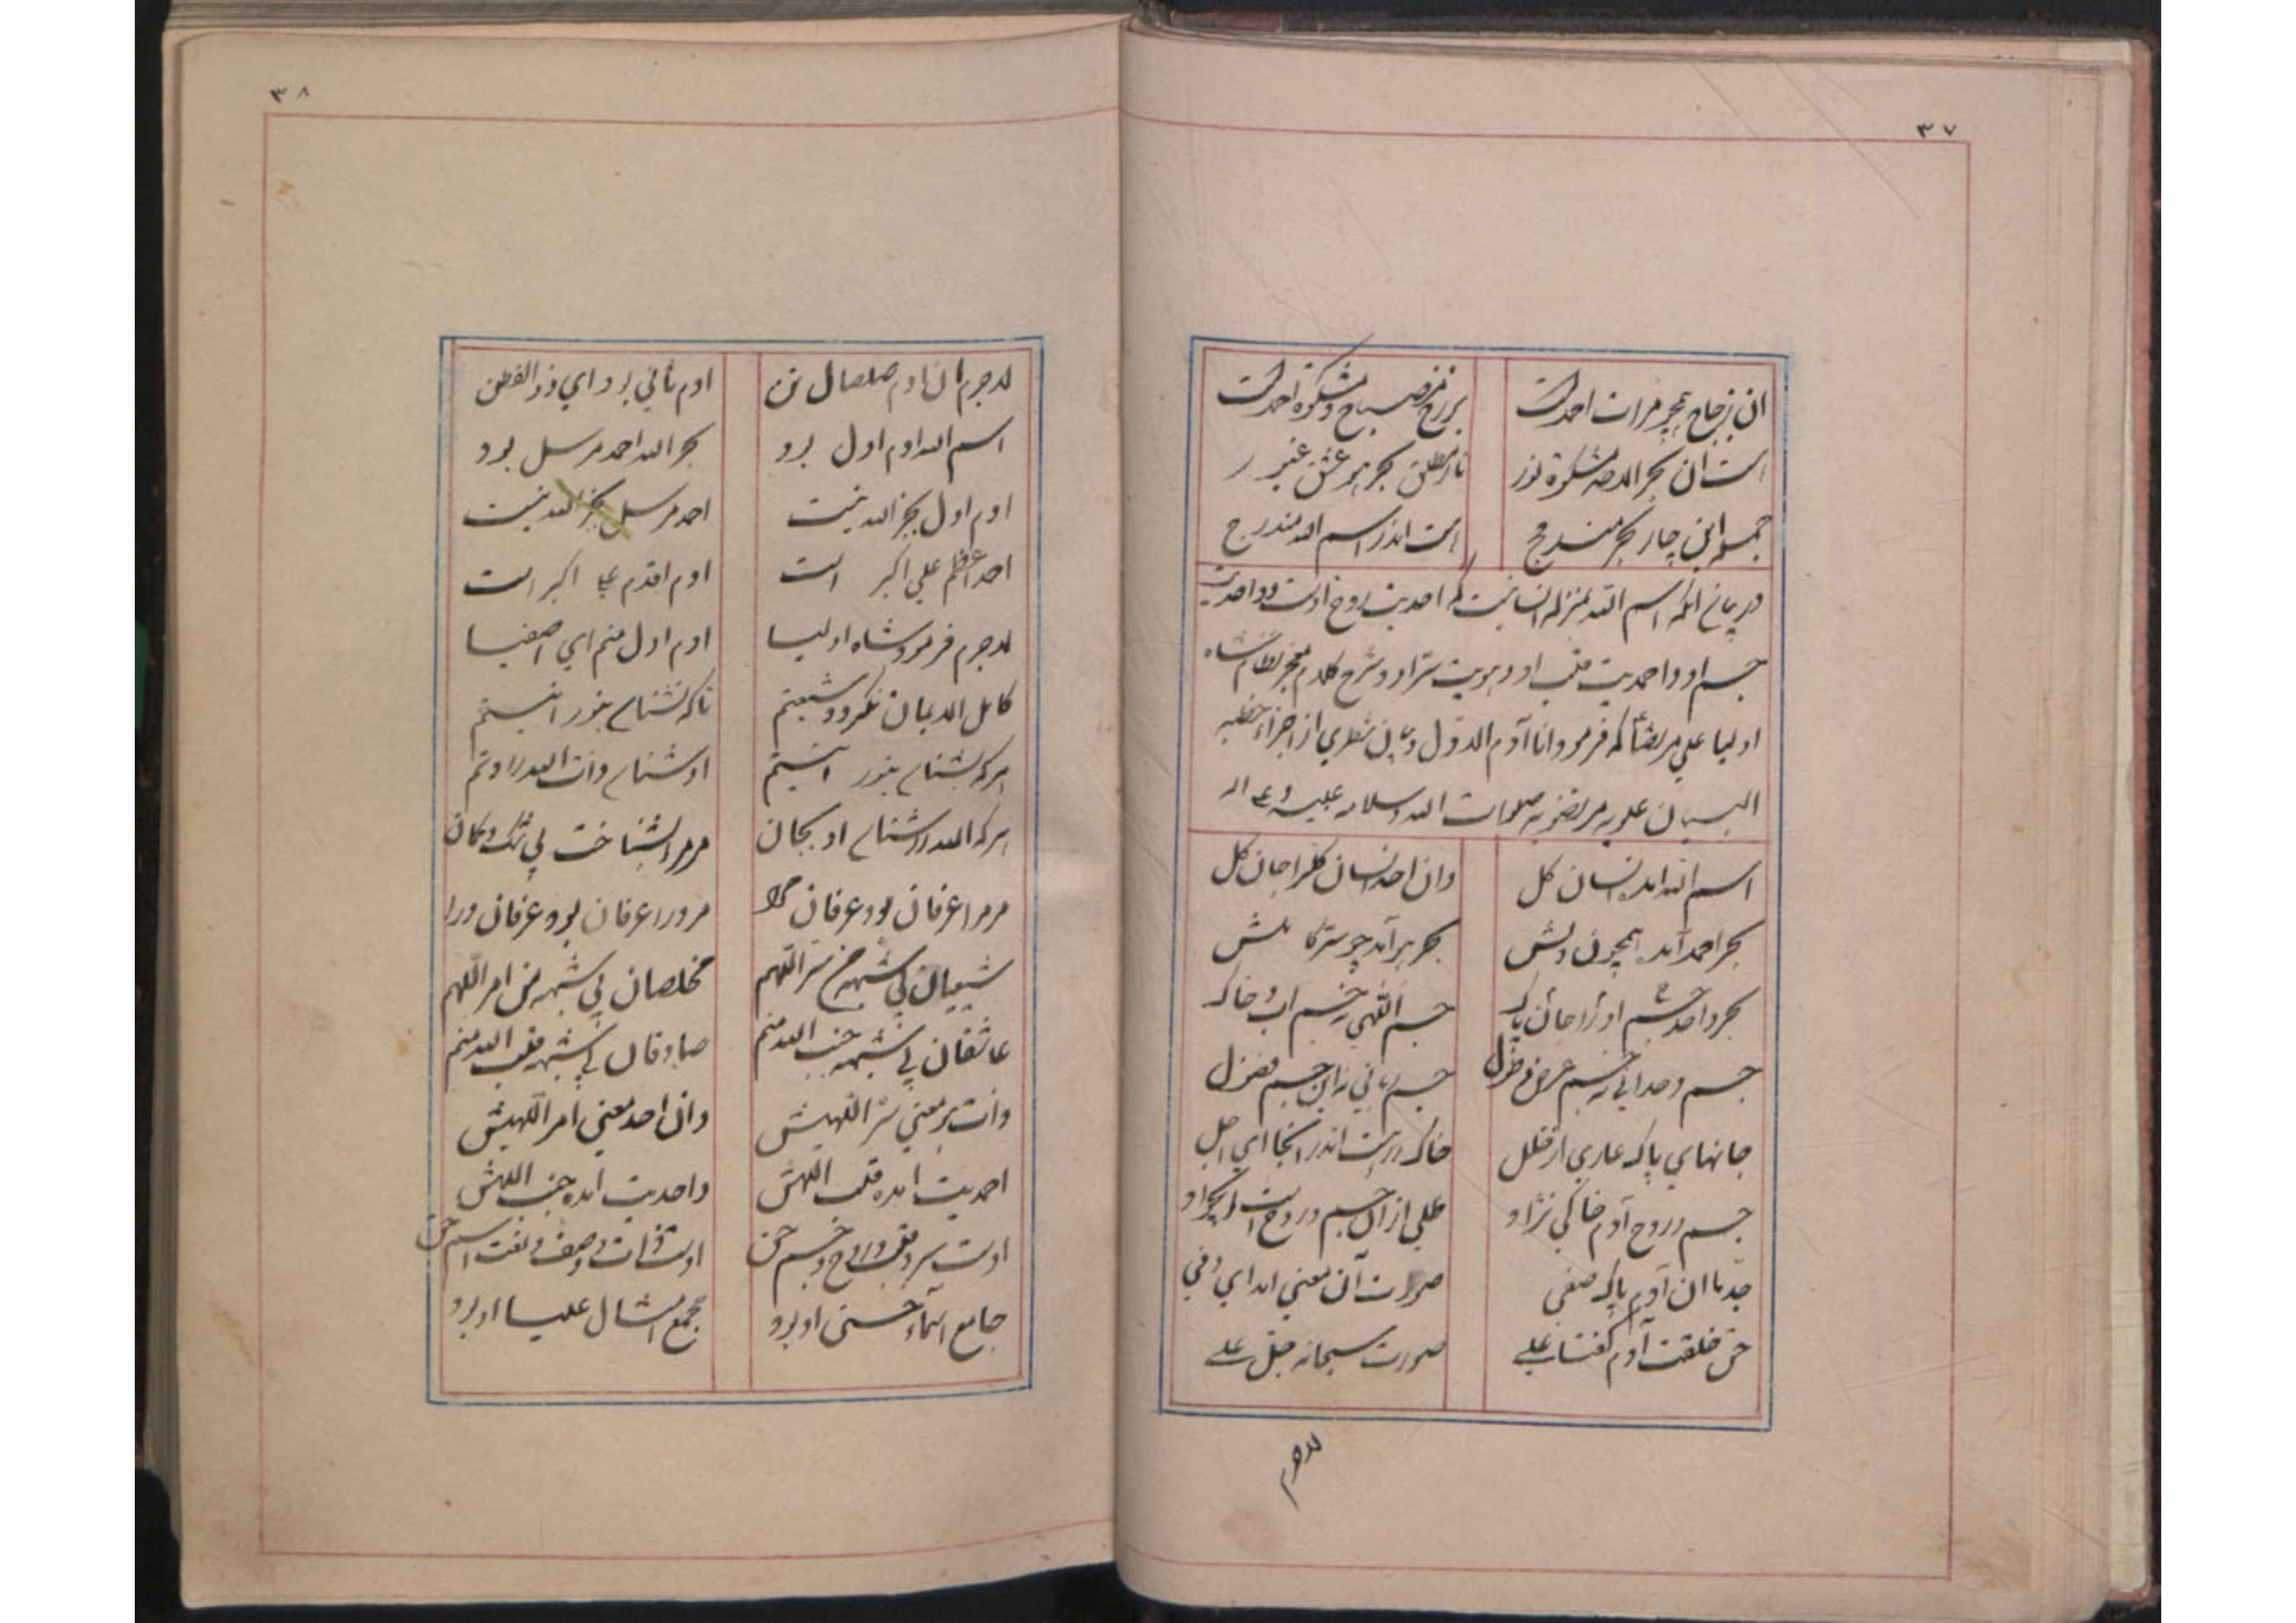 ۳۷
ان زجاج همچو مرات احمدست
برزخ مصباح و مشکوة احمدست
است ان بحر الله مشکوة نور
نار مطلق بحر هو عشق غیور
جمله این چار بحر مندمج
است اندر اسم الله مندرج
در بیان انکه اسم الله بمنزله انسانیست که احدیت روح اوست و واحدیت
جسم او و احمدیت قلب او و هویت سر او و شرح کلام معجز نظام شاه
اولیا علی مرتضا که فرمود انا آدم الاول و بیان شطری از اجزاء خطبه
البیان علویه مرتضویه صلوات الله و سلامه علیه و علی اله
اسم الله امد انسان کل
وان احد انسان کلرا جان کل
بحر احمد آمد همچون دلش
بحر هو آمد چو سر کاملش
بحر واحد جسم او را جان پاک
جسم اللهی نه جسم اب و خاک
جسم وحدانی نه جسم عرض و طول
جسم ربانی نه این جسم فضول
جانهای پاک عاری از خلل
خاک راهست اندر انجا ای اجل
جسم و روح آدم خاکی نژاد
ظلی از آن جسم و روحست ای جواد
جد ما ان آدم پاک صفی
صورت آن معنی امد ای وفی
حق خلقت آدم گفتا علی
صورت سبحانه جل علی
لاجرم
۳۸
لاجرم ان ادم صلصال تن
ادم ثانی بود ای ذو الفطن
اسم الله ادم اول بود
بحر الله احمد مرسل بود
ادم اول بجز الله نیست
احمد مرسل بجز الله نیست
احمد اعظم علی اکبر است
ادم اقدم علی اکبر است
لاجرم فرمود شاه اولیا
ادم اول منم ای اصفیا
کامل الایمان نکردد شیعتم
تا که نشناسد بنورانیتم
هرکه بشناسد بنورانیتم
او شناسد ذات الله را وتم
هرکه الله را شناسد او بجان
مر مرا بشناخت بی شک و کمان
مر مرا عرفان بود عرفان
مر ورا عرفان بود عرفان ورا
شیعیان بی شبهه من سر اللهم
مخلصان بی شبهه من امر اللهم
عاشقان بی شبهه جنب الله منم
صادقان بی شبهه قلب الله منم
ذات هو معنی سر اللهیش
وان احد معنی امر اللهیش
احمدیت امده قلب اللهش
واحدیت امده جنب اللهش
اوست سر و قلب و روح و جسم حق
اوست ذات و وصف و نعت اسم حق
جامع اسماء حسنی او بود
مجمع امثال علیا او بود